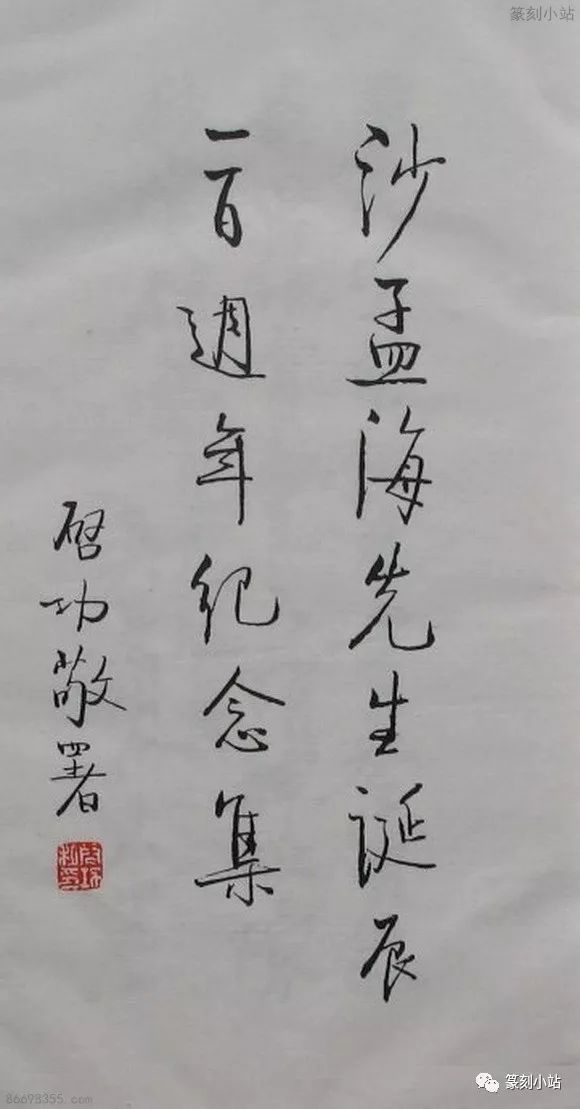 篆刻小站
沙孟海先生誕辰
一百週年纪念集
启功敬署
启功私印
篆刻小站
86698355.com